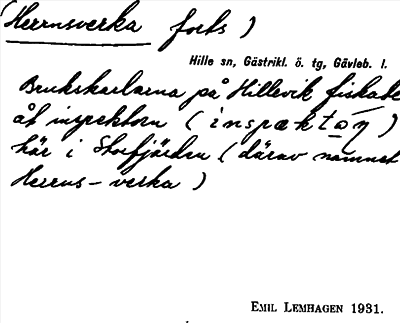 (Herrnsverka forts)
Hille sn, Gästrikl. ö. tg, Gävleb. l.
Brukskarlarna på Hillevik fiskade
åt inspektorn (inspæktɔ̄η)
här i Storfjärden (därav namnet
Herrns-verka)
EMIL LEMHAGEN 1931.